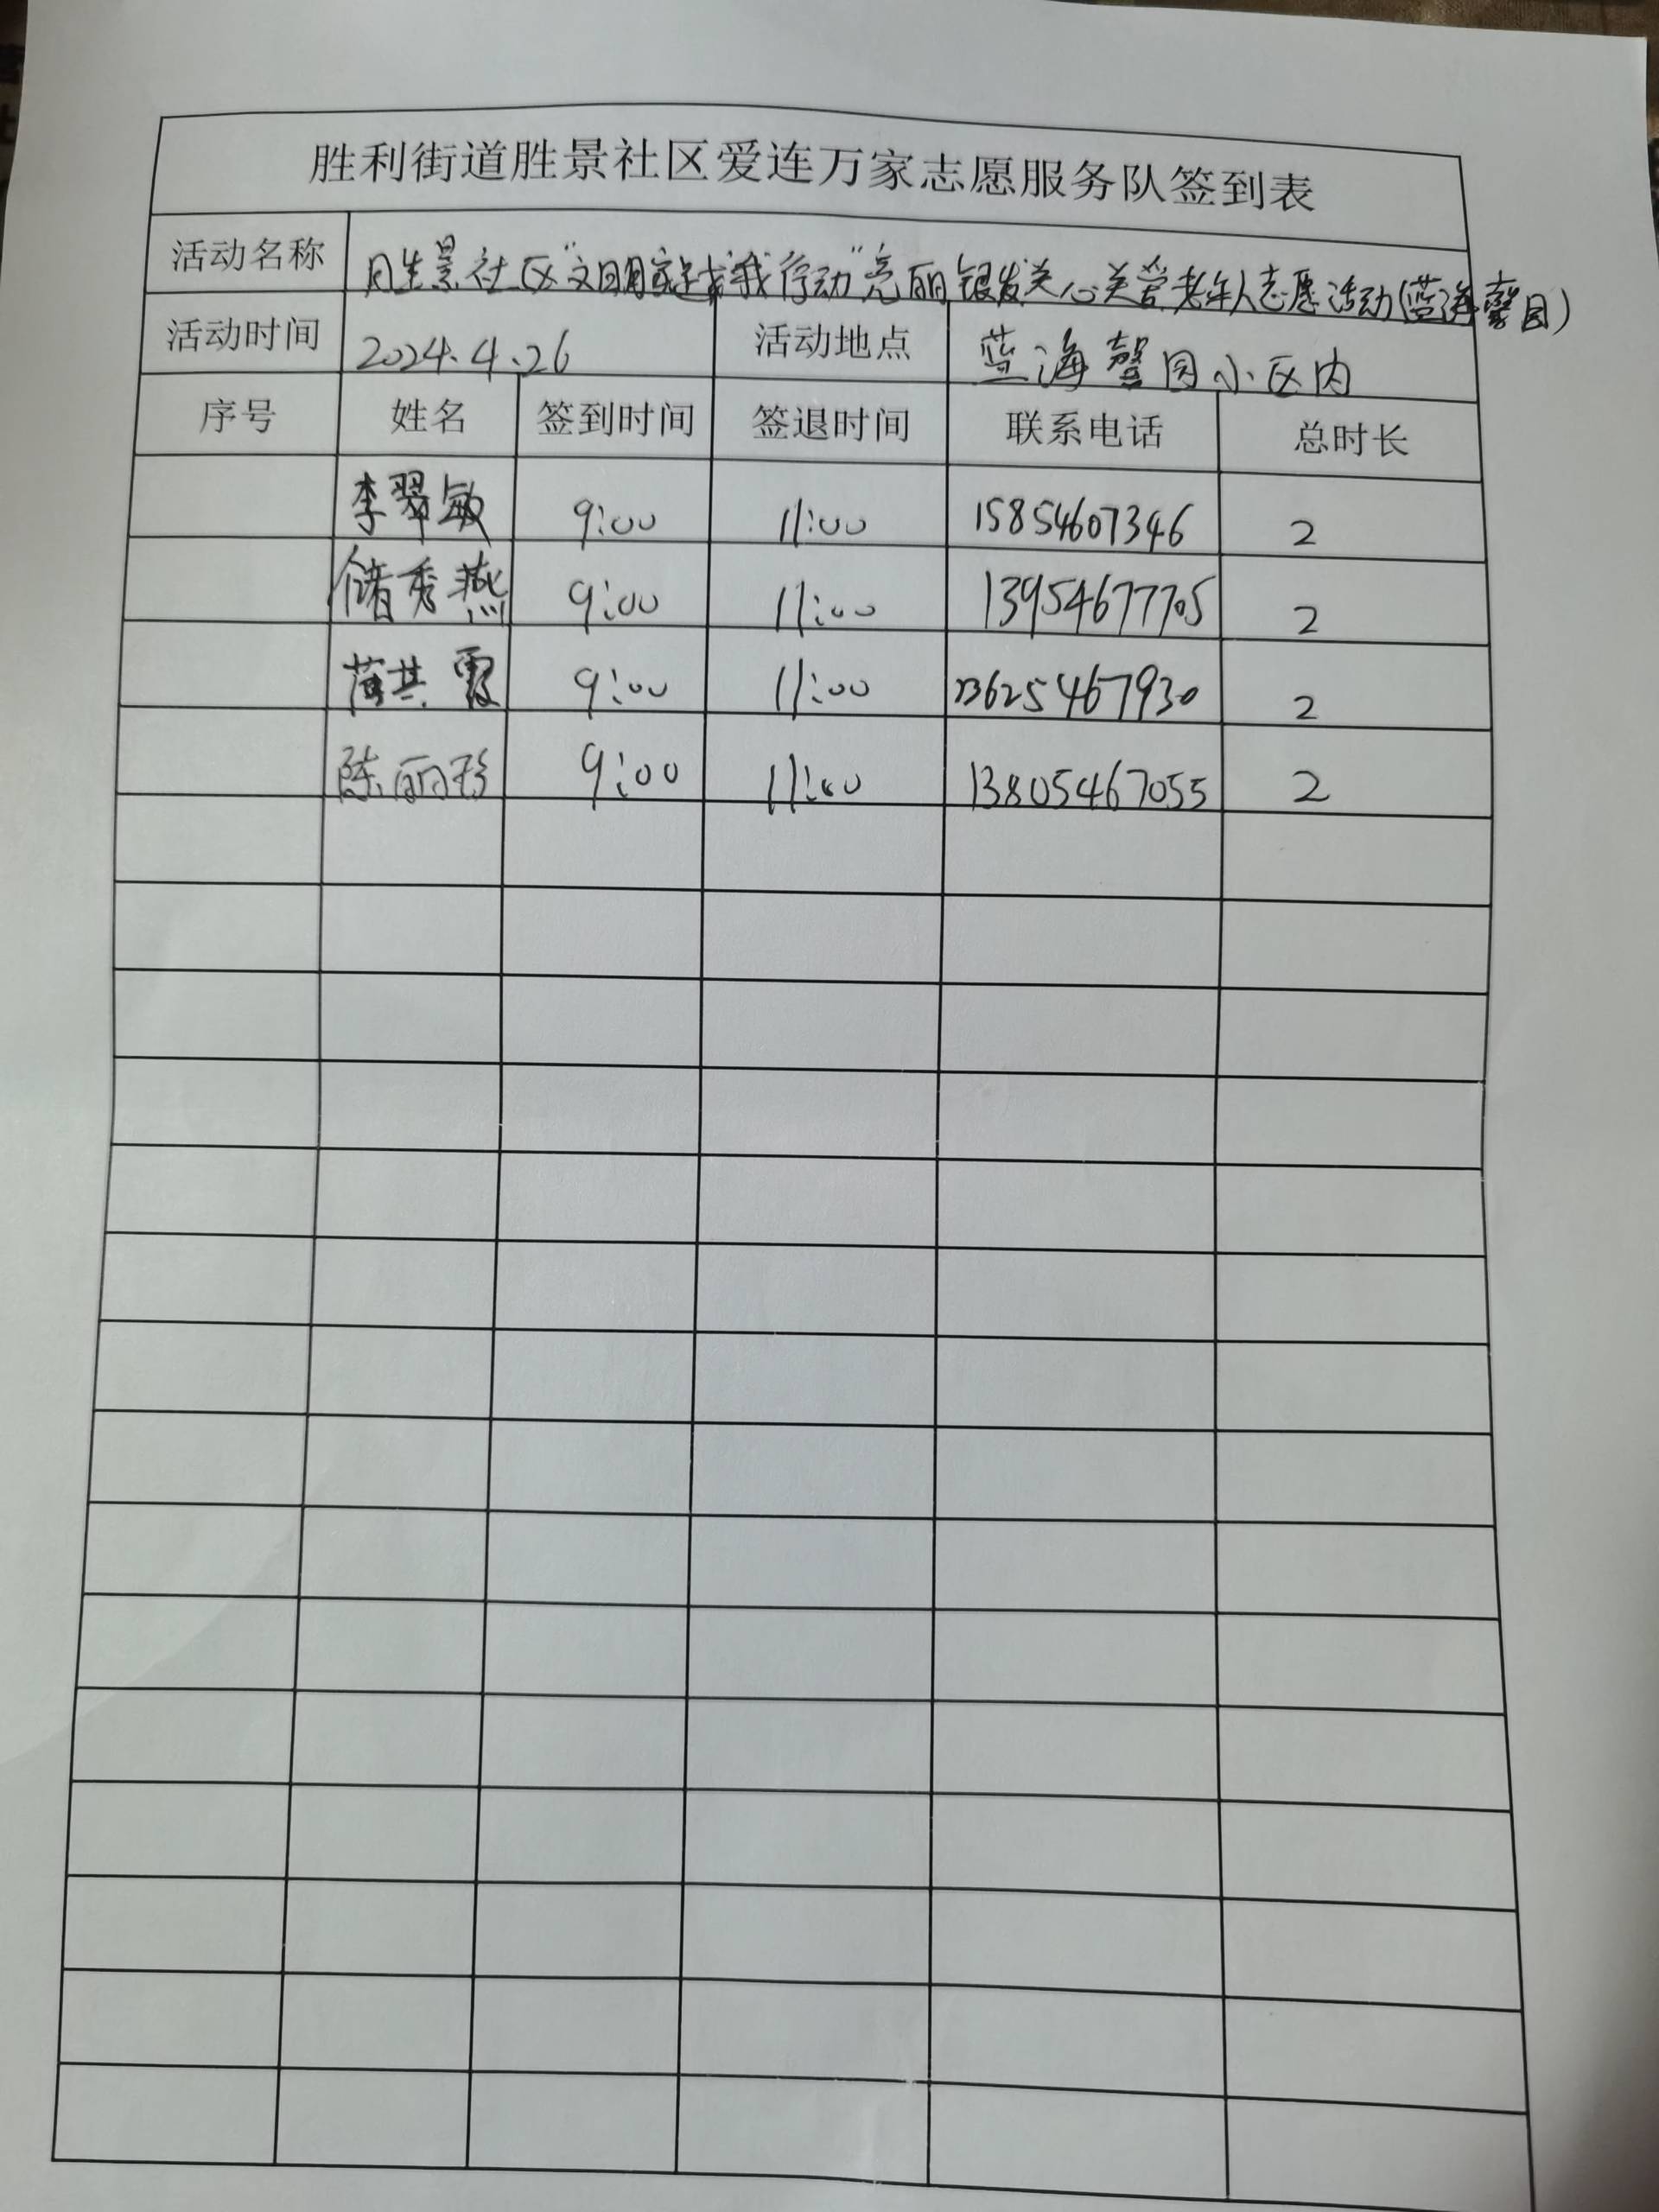 胜利街道胜景社区爱连万家志愿服务队签到表
活动名称 胜景社区“文明家庭我行动”亮丽银发关心关爱老年人志愿活动(蓝海馨园)
活动时间 2024.4.26 活动地点 蓝海馨园小区内
序号 姓名 签到时间 签退时间 联系电话 总时长
李翠敏 9:00 11:00 15854607346 2
储秀燕 9:00 11:00 13954677705 2
蒲其霞 9:00 11:00 13625467930 2
陈丽珍 9:00 11:00 13805467055 2